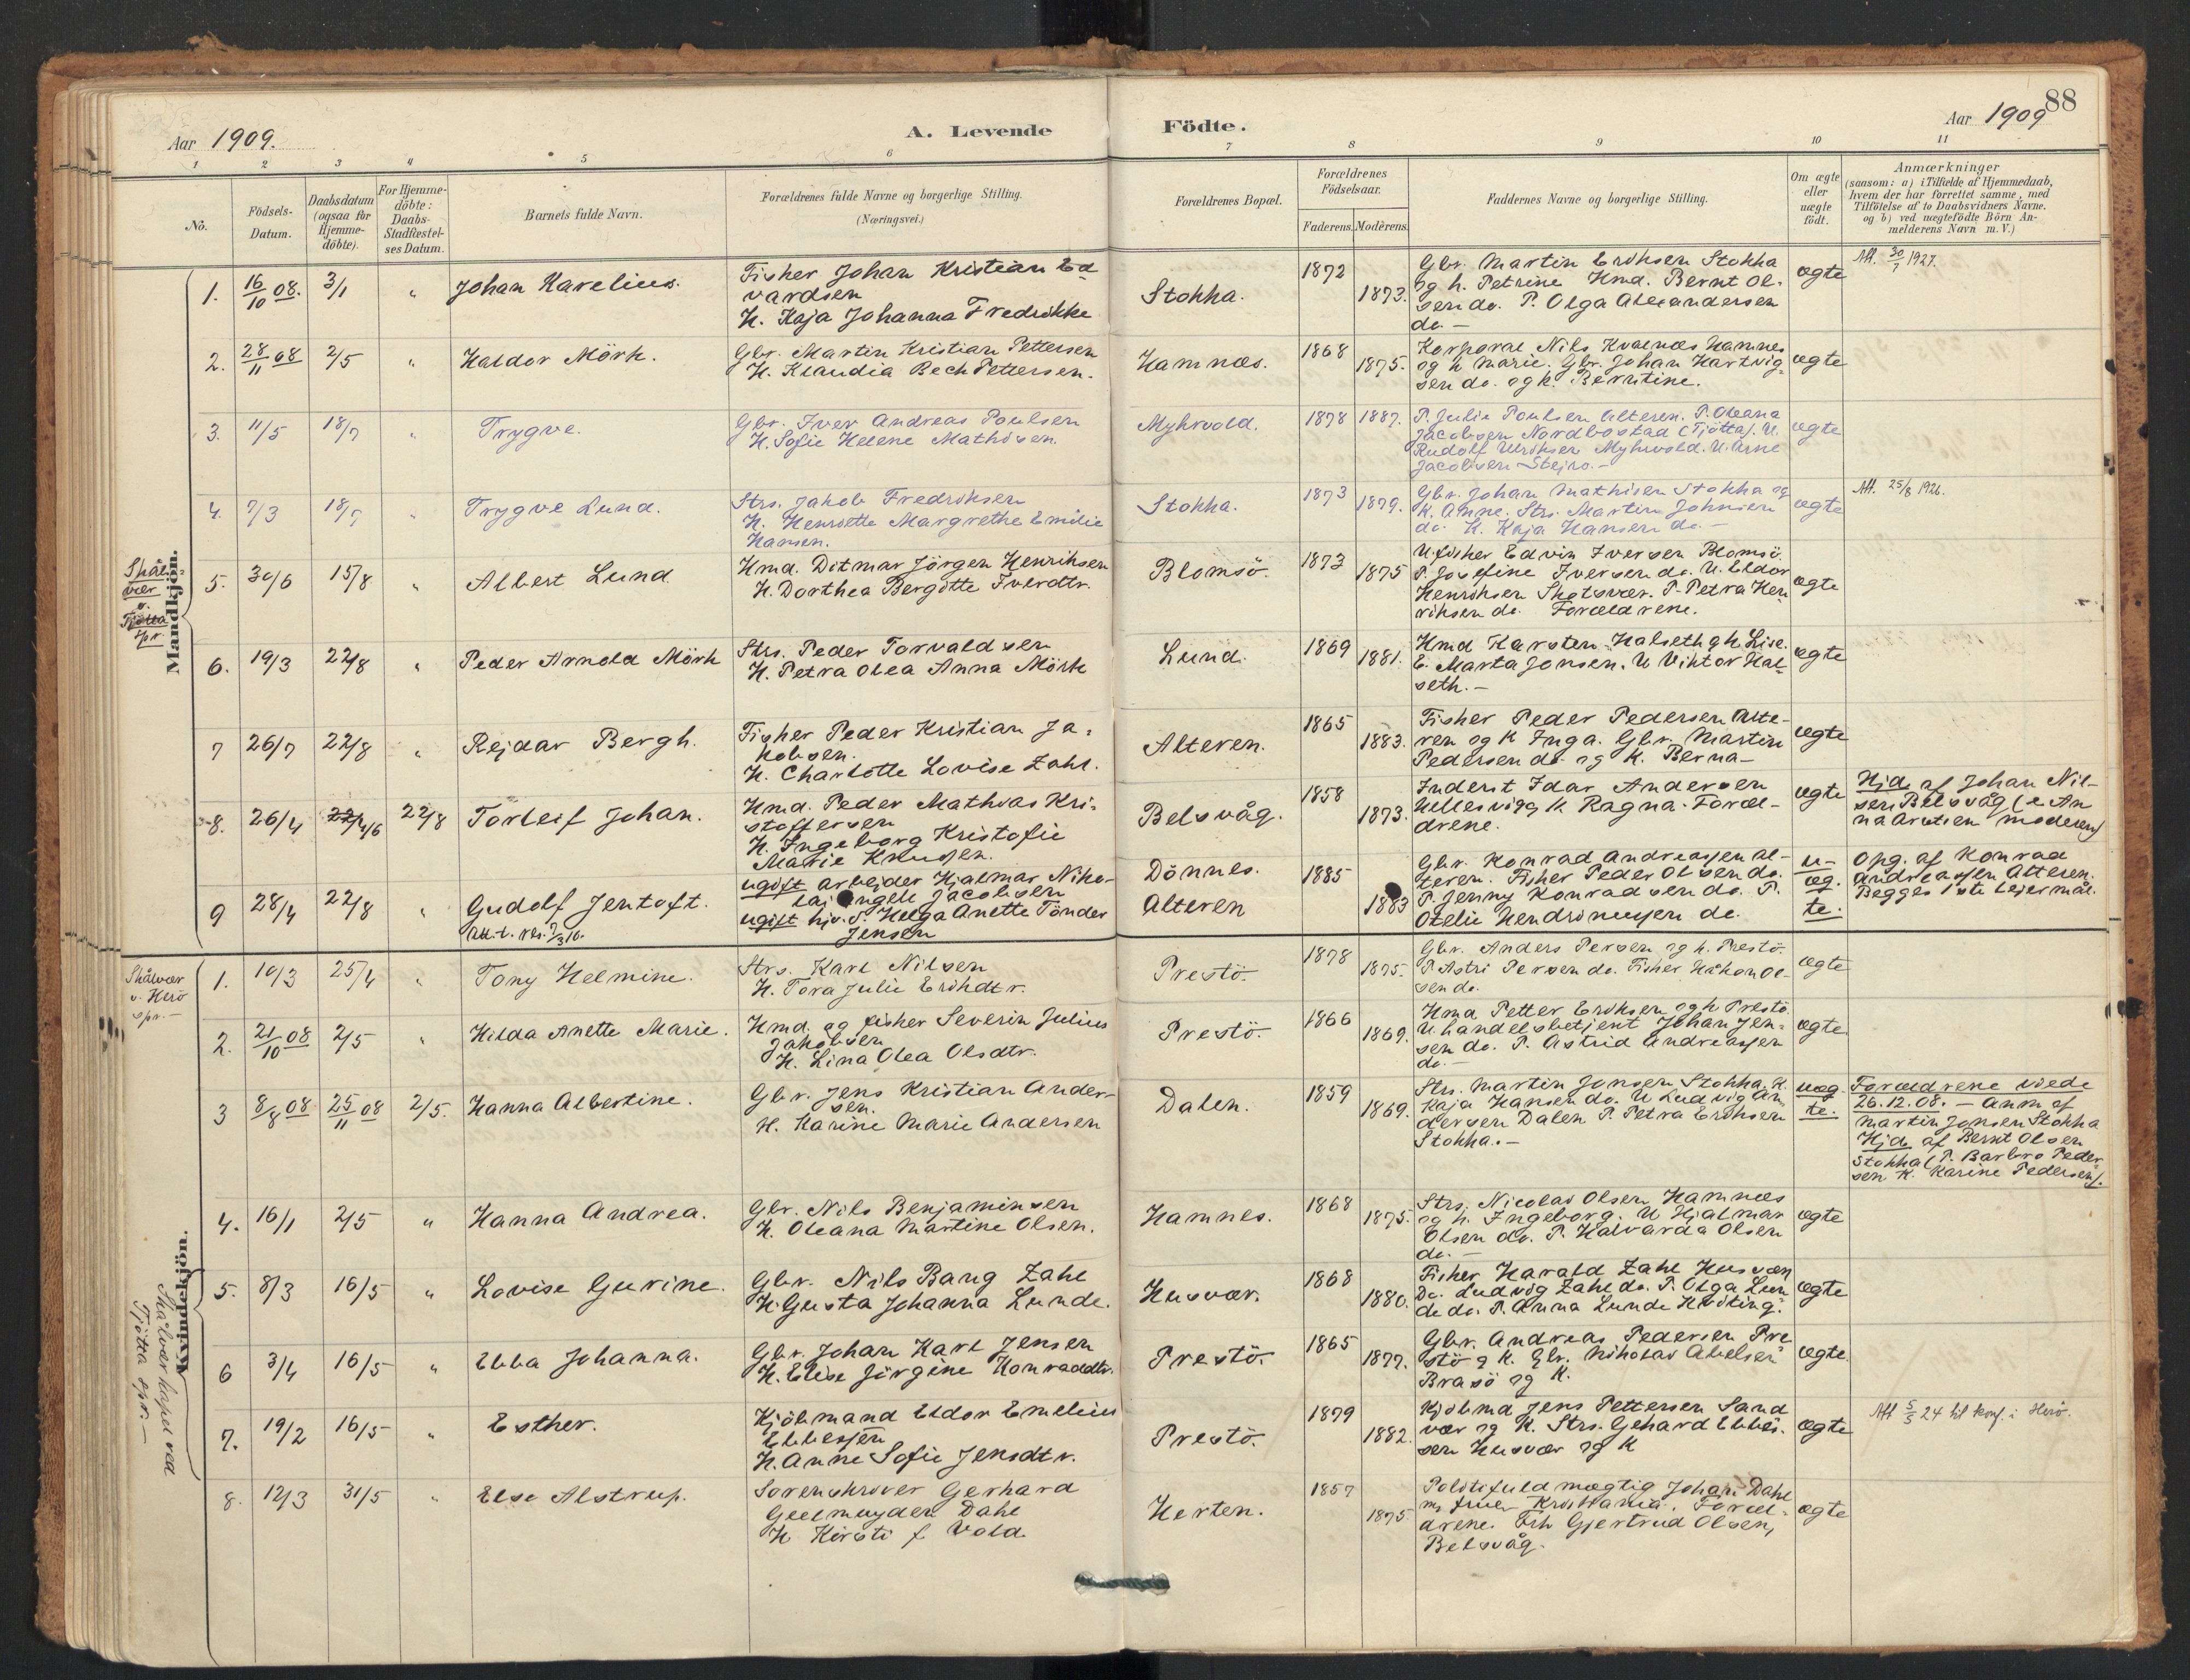 88
Aar 1909.
A. Levende
Födte.
Aar 1909
1 2 3 4 5 6 7 8 9 10 11
No.
Födsels-
Datum.
Daabsdatum
(ogsaa for
Hjemme-
döbte).
For Hjemme-
döbte:
Daabs-
Stadfæstel-
ses Datum.
Barnets fulde Navn.
Forældrenes fulde Navne og borgerlige Stilling.
(Næringsvei.)
Forældrenes Bopæl.
Forældrenes
Födselsaar.
Faderens. Moderens.
Faddernes Navne og borgerlige Stilling.
Om ægte
eller
uægte
födt.
Anmærkninger
(saasom: a) i Tilfælde af Hjemmedaab,
hvem der har forrettet samme, med
Tilföielse af to Daabsvidners Navne.
og b) ved uægtefödte Börn An-
melderens Navn m. V.)
Mandkjön.
Skål-
vær
v.
Tjötta
spr.
1. 16/10 08. 3/1 " Johan Karelius.
Fisker Johan Kristian Ed
vardsen
H. Kaja Johanna Fredrikke
Stokka.
1872 1873.
Gbr. Martin Eriksen Stokka
og h. Petrine Hmd. Bernt Ol-
sen do. P. Olga Alexandersen
do. —
ægte
Att. 30/7 1927.
2. 28/11 08 2/5 " Haldor Mörk.
Gbr. Martin Kristian Pettersen
H. Klaudia Bech Pettersen.
Hamnæs.
1868 1875.
Korporal Nils Kvalnæs Hamnes
og h Marie. Gbr. Johan Hartvig-
sen do. og k. Berntine.
ægte
3. 11/5 18/7 " Trygve.
Gbr. Iver Andreas Poulsen
H. Sofie Helene Mathisen.
Myhrvold.
1878 1887.
P. Julie Poulsen Alteren. P. Oleana
Jacobsen Nordbostad (Tjötta). U.
Rudolf Ulriksen Myhrvold. U. Arne
Jacobsen Stejro. —
ægte
4. 7/3 18/7 " Trygve Lund.
Strs. Jakob Fredriksen
H. Henriette Margrethe Emilie
Hansen.
Stokka.
1873 1879.
Gbr. Johan Mathisen Stokka og
K. Anne. Strs. Martin Johnsen
do. K. Kaja Hansen do. —
ægte
Att. 25/8 1926.
5. 30/6 15/8 " Albert Lund
Hmd. Ditmar Jörgen Henriksen
H. Dorthea Bergitte Iverdtr.
Blomsö.
1873 1875
U. fisker Edvin Iversen Blomsö
P. Josefine Iversen do. U. Eldor
Henriksen Skotsvær. P. Petra Hen
riksen do. Forældrene.
ægte
6. 19/3 22/8 " Peder Arnold Mörk
Strs. Peder Torvaldsen
H. Petra Olea Anna Mörk
Lund.
1869 1881.
Hmd Karsten Halseth g h Lise.
E. Marta Jonsen. U Viktor Hal-
seth. —
ægte
7 26/7 22/8 " Rejdar Bergh.
Fisker Peder Kristian Ja-
kobsen.
H. Charlotte Lovise Zahl.
Alteren.
1865 1883.
Fisker Peder Pedersen Alte-
ren og K Inga. Gbr. Martin
Pedersen do og K. Berna —
ægte
8. 26/4 22/8 Torleif Johan.
Hmd. Peder Mathias Kri-
stoffersen
H. Ingeborg Kristofie
Marie Knutsen.
Belsvåg.
1858 1873.
Inderst Idar Andersen
Hellesvig g K Ragna. Foræl-
drene.
ægte
Hjd. af Johan Nil-
sen Belsvåg (e An
na Arntsen moderen)
9 28/4 22/8 " Gudolf Jentoft.
ugift arbejder Hjalmar Niko-
laj Angell Jacobsen
ugift Helga Anette Tönder
Jensen
Dönnes.
Alteren
1885 1883
Gbr. Konrad Andreassen Al-
teren. Fisker Peder Olsen do.
P. Jenny Konradsen do. P.
Otelie Hendriksen do.
u-
æg.
te.
Opg. af Konrad
Andreassen Alteren.
Begges 1ste lejermål.
Kvindekjön.
Skålvær
v. Herö
spr. —
1. 10/3 25/4 " Tony Helmine.
Strs. Karl Nilsen
H. Tora Julie Erikdtr.
Prestö.
1878 1875.
Gbr. Anders Persen og h. Prestö
P. Astri Persen do. Fisker Håkon Ol-
sen do.
ægte
2. 21/10 08 2/5 " Hilda Anette Marie.
Hmd. og fisker Severin Julius
Jakobsen
H. Lina Olea Olsdtr.
Prestö.
1866 1869.
Hmd Petter Eriksen og h Prestö
U handelsbetjent Johan Jen-
sen do. P. Astrid Andreassen
do. —
ægte
3 8/8 08 25/11 08 2/5. Hanna Albertine.
Gbr. Jens Kristian Ander-
sen.
H. Karine Marie Andersen
Dalen.
1859 1869.
Strs. Martin Jonsen Stokka. K.
Kaja Hansen do. U Ludvig An
dersen Dalen P. Petra Eriksen
Stokka. —
uæg
te.
Forældrene viede
26.12.08. — Anm af
Martin Jonsen Stokka
Hjd. af Bernt Olsen
Stokka (P. Barbro Peder
sen K. Karine Pedersen).
4. 16/1 2/5 " Hanna Andrea.
Gbr. Nils Benjaminsen
H. Oleana Martine Olsen.
Hamnes.
1868 1875.
Strs. Nicolai Olsen Hamnæs
og h. Ingeborg. U Hjalmar
Olsen do. P. Halvarda Olsen
do. —
ægte
Skålvær kapel ved
Tjötta spr. —
5. 8/3 16/5 " Lovise Gurine.
Gbr. Nils Bang Zahl
H. Gusta Johanna Lunde.
Husvær.
1868 1880.
Fisker Harald Zahl Husvær
Do. Ludvig Zahl do. P. Olga Lun
de do. P. Anna Lunde Hviting.
ægte
6 3/4 16/5 " Ebba Johanna.
Gbr. Johan Karl Jensen
H. Elise Jörgine Konraddtr.
Prestö.
1865 1877.
Gbr. Andreas Pedersen Pre
stö g K. Gbr. Nikolai Abelsen
Brasö og K.
ægte
7. 19/2 16/5 " Esther.
Kjöbmand Eldor Emelius
Ebbesen
H. Anne Sofie Jensdtr.
Prestö.
1879 1882.
Kjöbmd Jens Pettersen Sand
vær og K. Strs. Gehard Ebbe-
sen Husvær og K
ægte
Att 5/5 24 til konf. i Herö.
8. 12/3 31/5 " Else Alstrup.
Sorenskriver Gerhard
Geelmuyden Dahl
H Kirsti f Vold
Herten.
1857 1875.
Politifuldmægtig Johan Dahl
m frue Kristiania. Foræl-
drene. Frk Gjertrud Olsen,
Belsvåg.
ægte